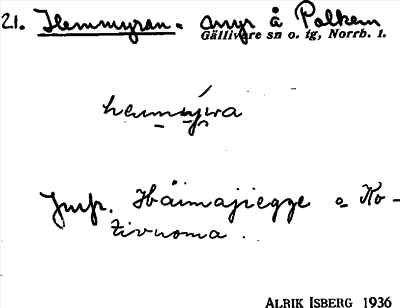 21. Hemmyran. myr å Polkem
Gällivare sn o. tg, Norrb. l.
hemmýra
Jmfr. Háimajiegge o Ko-
tivuoma.
ALRIK ISBERG 1936